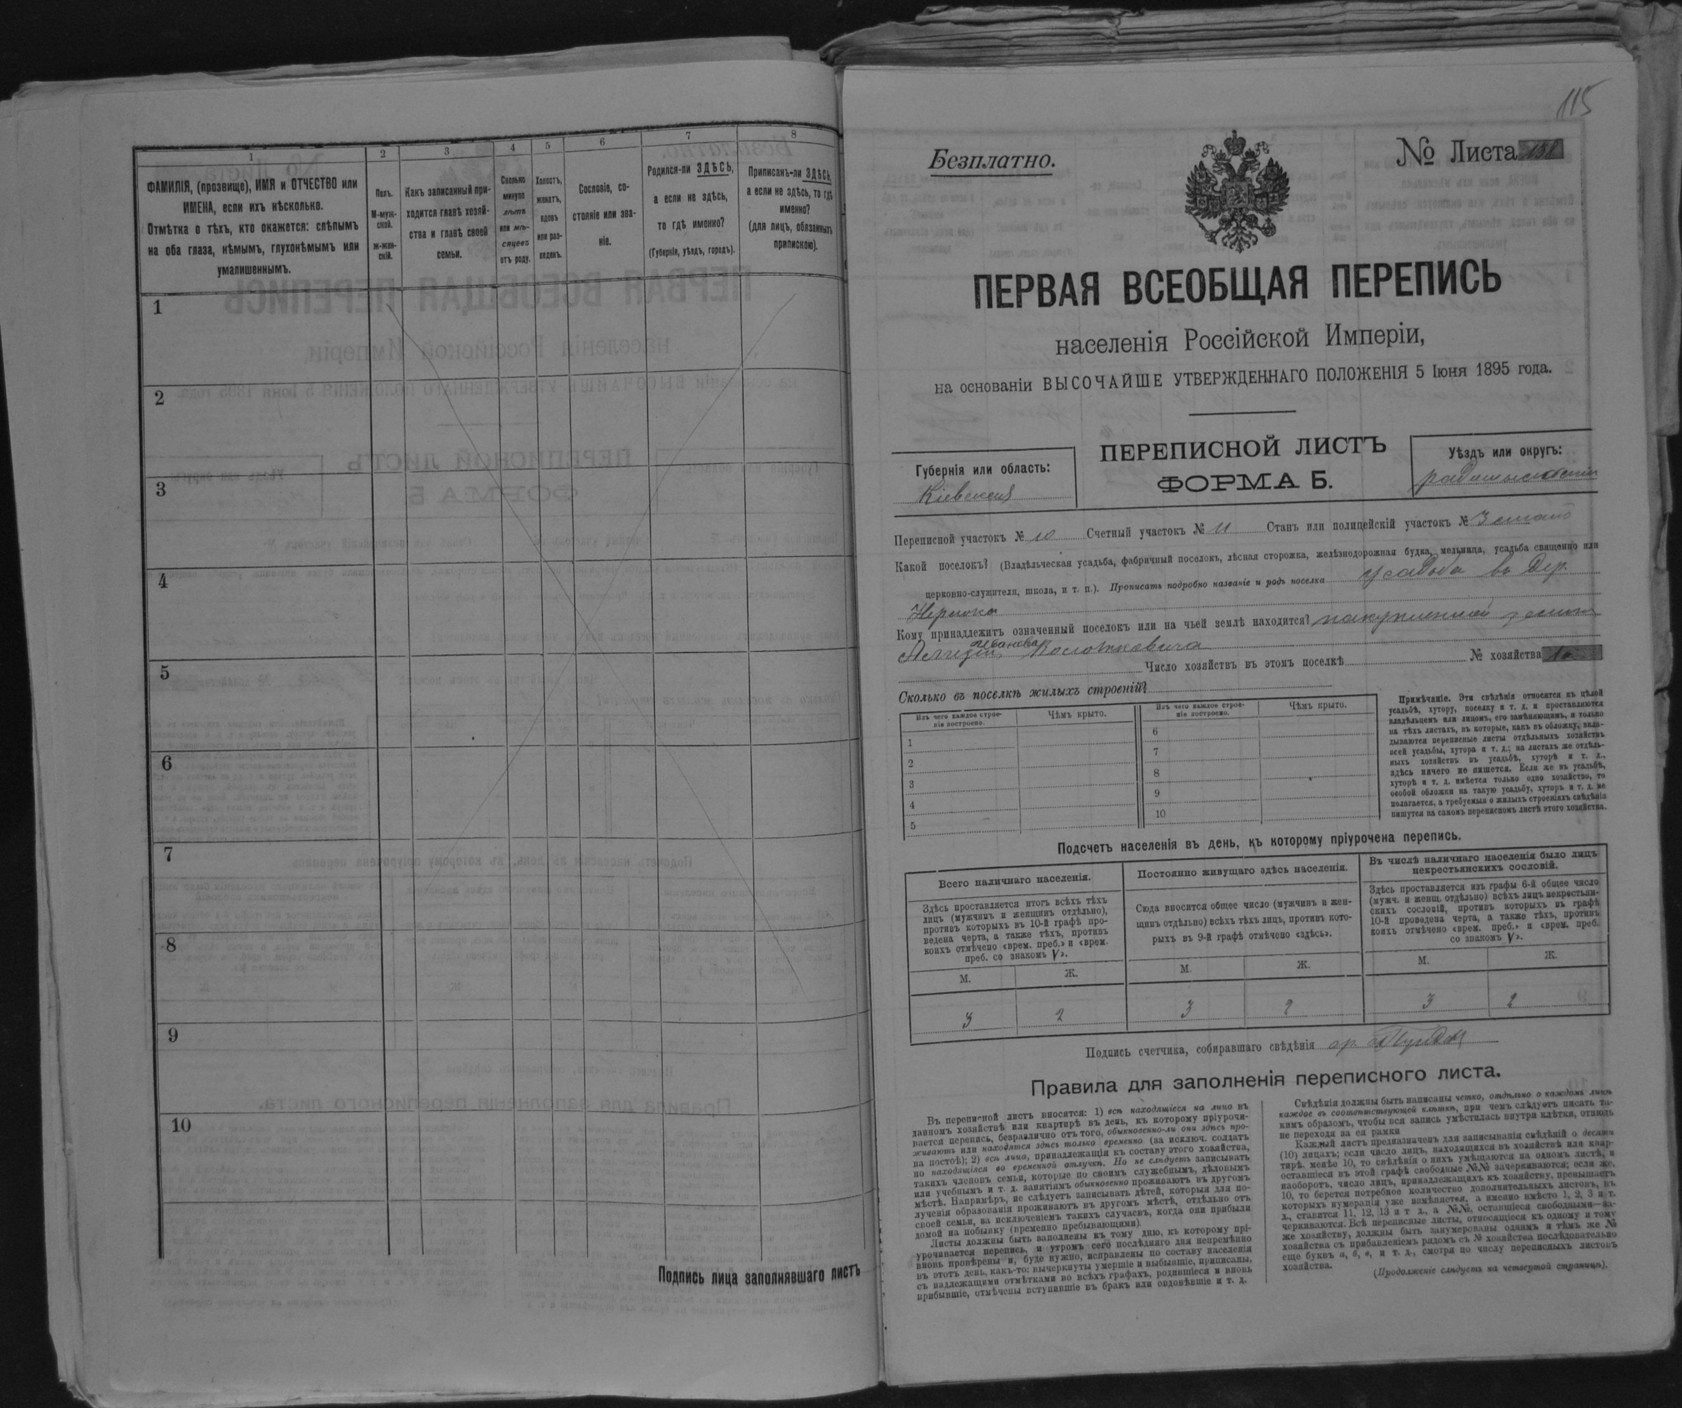 1
ФАМИЛІЯ, (прозвище), ИМЯ и ОТЧЕСТВО или
ИМЕНА, если ихъ нѣсколько.
Отмѣтка о тѣхъ, кто окажется: слѣпымъ
на оба глаза, нѣмымъ, глухонѣмымъ или
умалишеннымъ.
2
Полъ.
М-муж-
ской.
ж-жен-
скій.
3
Какъ записанный при-
ходится главѣ хозяй-
ства и главѣ своей
семьи.
4
Сколько
минуло
лѣтъ
или мѣ-
сяцевъ
отъ роду.
5
Холостъ,
женатъ,
вдовъ
или раз-
веденъ.
6
Сословіе, со-
стояніе или зва-
ніе.
7
Родился-ли ЗДѢСЬ,
а если не здѣсь,
то гдѣ именно?
(Губернія, уѣздъ, городъ).
8
Приписанъ-ли ЗДѢСЬ,
а если не здѣсь, то гдѣ
именно?
(для лицъ, обязанныхъ
припискою).
1
2
3
4
5
6
7
8
9
10
Подпись лица заполнявшаго листъ
115
Безплатно.
№ Листа
ПЕРВАЯ ВСЕОБЩАЯ ПЕРЕПИСЬ
населенія Россійской Имперіи,
на основаніи ВЫСОЧАЙШЕ УТВЕРЖДЕННАГО ПОЛОЖЕНІЯ 5 Іюня 1895 года.
Губернія или область:
Кіевская
ПЕРЕПИСНОЙ ЛИСТЪ
ФОРМА Б.
Уѣздъ или округъ:
Переписной участокъ № 10 Счетный участокъ № 11 Станъ или полицейскій участокъ № 3
Какой поселокъ? (Владѣльческая усадьба, фабричный поселокъ, лѣсная сторожка, желѣзнодорожная будка, мельница, усадьба священно или
церковно-служителя, школа, и т. п.). Прописать подробно названіе и родъ поселка усадьба въ Дер.
Кому принадлежитъ означенный поселокъ или на чьей землѣ находится?
Число хозяйствъ въ этомъ поселкѣ № хозяйства
Сколько въ поселкѣ жилыхъ строеній?
Изъ чего каждое строе-
ніе построено.
Чѣмъ крыто.
Изъ чего каждое строе-
ніе построено.
Чѣмъ крыто.
1
2
3
4
5
6
7
8
9
10
Примѣчаніе. Эти свѣдѣнія относятся къ цѣлой
усадьбѣ, хутору, поселку и т. д. и проставляются
владѣльцемъ или лицомъ, его замѣняющимъ, и только
на тѣхъ листахъ, въ которые, какъ въ обложку, вкла-
дываются переписные листы отдѣльныхъ хозяйствъ
всей усадьбы, хутора и т. д.; на листахъ же отдѣль-
ныхъ хозяйствъ въ усадьбѣ, хуторѣ и т. д.,
здѣсь ничего не пишется. Если же въ усадьбѣ,
хуторѣ и т. д. имѣется только одно хозяйство, то
особой обложки на такую усадьбу, хуторъ и т. д. не
полагается, а требуемыя о жилыхъ строеніяхъ свѣдѣнія
пишутся на самомъ переписномъ листѣ этого хозяйства.
Подсчетъ населенія въ день, къ которому пріурочена перепись.
Всего наличнаго населенія.
Здѣсь проставляется итогъ всѣхъ тѣхъ
лицъ (мужчинъ и женщинъ отдѣльно),
противъ которыхъ въ 10-й графѣ про-
ведена черта, а также тѣхъ, противъ
коихъ отмѣчено «врем. преб.» и «врем.
преб. со знакомъ V».
М. Ж.
3 2
Постоянно живущаго здѣсь населенія.
Сюда вносится общее число (мужчинъ и жен-
щинъ отдѣльно) всѣхъ тѣхъ лицъ, противъ кото-
рыхъ въ 9-й графѣ отмѣчено «здѣсь».
М. Ж.
3 2
Въ числѣ наличнаго населенія было лицъ
некрестьянскихъ сословій.
Здѣсь проставляется изъ графы 6-й общее число
(мужч. и женщ. отдѣльно) всѣхъ лицъ некрестьян-
скихъ сословій, противъ которыхъ въ графѣ
10-й проведена черта, а также тѣхъ, противъ
коихъ отмѣчено «врем. преб.» и «врем. преб.
со знакомъ V».
М. Ж.
3 2
Подпись счетчика, собиравшаго свѣдѣнія
Правила для заполненія переписного листа.
Въ переписной листъ вносятся: 1) всѣ находящіеся на лицо въ
данномъ хозяйствѣ или квартирѣ въ день, къ которому пріурочи-
вается перепись, безразлично отъ того, обыкновенно-ли они здѣсь про-
живаютъ или находятся здѣсь только временно (за исключ. солдатъ
на постоѣ); 2) всѣ лица, принадлежащія къ составу этого хозяйства,
но находящіеся во временной отлучкѣ. Но не слѣдуетъ записывать
такихъ членовъ семьи, которые по своимъ служебнымъ, дѣловымъ
или учебнымъ и т. д. занятіямъ обыкновенно проживаютъ въ другомъ
мѣстѣ. Напримѣръ, не слѣдуетъ записывать дѣтей, которыя для по-
лученія образованія проживаютъ въ другомъ мѣстѣ, отдѣльно отъ
своей семьи, за исключеніемъ такихъ случаевъ, когда они прибыли
домой на побывку (временно пребывающими).
Листы должны быть заполнены къ тому дню, къ которому прі-
урочивается перепись, и утромъ сего послѣдняго дня непремѣнно
вновь провѣрены и, буде нужно, исправлены по составу населенія
въ этотъ день, какъ-то: вычеркнуты умершіе и выбывшіе, приписаны,
съ надлежащими отмѣтками во всѣхъ графахъ, родившіеся и вновь
прибывшіе, отмѣчены вступившіе въ бракъ или овдовѣвшіе и т. д.
Свѣдѣнія должны быть написаны четко, отдѣльно о каждомъ лицѣ
каждое въ соотвѣтствующей клѣткѣ, при чемъ слѣдуетъ писать та-
кимъ образомъ, чтобы вся запись умѣстилась внутри клѣтки, отнюдь
не переходя за ея рамки
Каждый листъ предназначенъ для записыванія свѣдѣній о десяти
(10) лицахъ; если число лицъ, находящихся въ хозяйствѣ или квар-
тирѣ, менѣе 10, то свѣдѣнія о нихъ умѣщаются на одномъ листѣ, и
оставшіеся въ этой графѣ свободные №№ зачеркиваются; если же,
наоборотъ, число лицъ, принадлежащихъ къ хозяйству, превышаетъ
10, то берется потребное количество дополнительныхъ листовъ, въ
которыхъ нумерація уже измѣняется, а именно вмѣсто 1, 2, 3 и т.
д., ставится 11, 12, 13 и т. д., а №№, оставшіеся свободными—за-
черкиваются. Всѣ переписные листы, относящіеся къ одному и тому
же хозяйству, должны быть занумерованы однимъ и тѣмъ же №
хозяйства съ прибавленіемъ рядомъ съ № хозяйства послѣдовательно
еще буквъ а, б, в, и т. д., смотря по числу переписныхъ листовъ
хозяйства.
(Продолженіе слѣдуетъ на четвертой страницѣ).